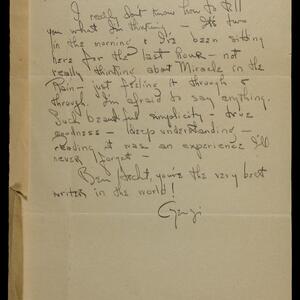 I really don't know how to tell
you what I'm thinking — It's two
in the morning & I've been sitting
here for the last hour — not
really thinking about Miracle in the
Rain — just feeling it through &
through. I'm afraid to say anything.
Such beautiful simplicity — true
goodness — deep understanding —
reading it was an experience I'll
never forget —
Ben Hecht, you're the very best
writer in the world!